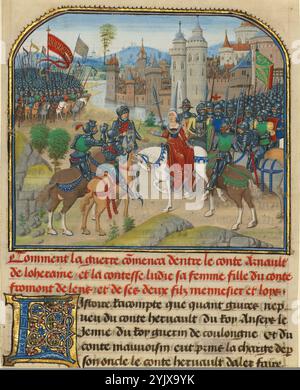 Comment la guerre cõmenca dentre le conte Arnault
de loheraine. et la contesse ludie sa femme fille du conte
fromont de lens. et de ses deux filz mennesier et loys.
Istoire racompte que quant guires nep
ueu du conte hernault du Roy Anseys le
Jenne du Roy guerin de coulongne et du
conte mauuoisin eut prins la charge de par
son oncle le conte hernault daler faire
alamy
Image ID: 2YJX9YK
www.alamy.com